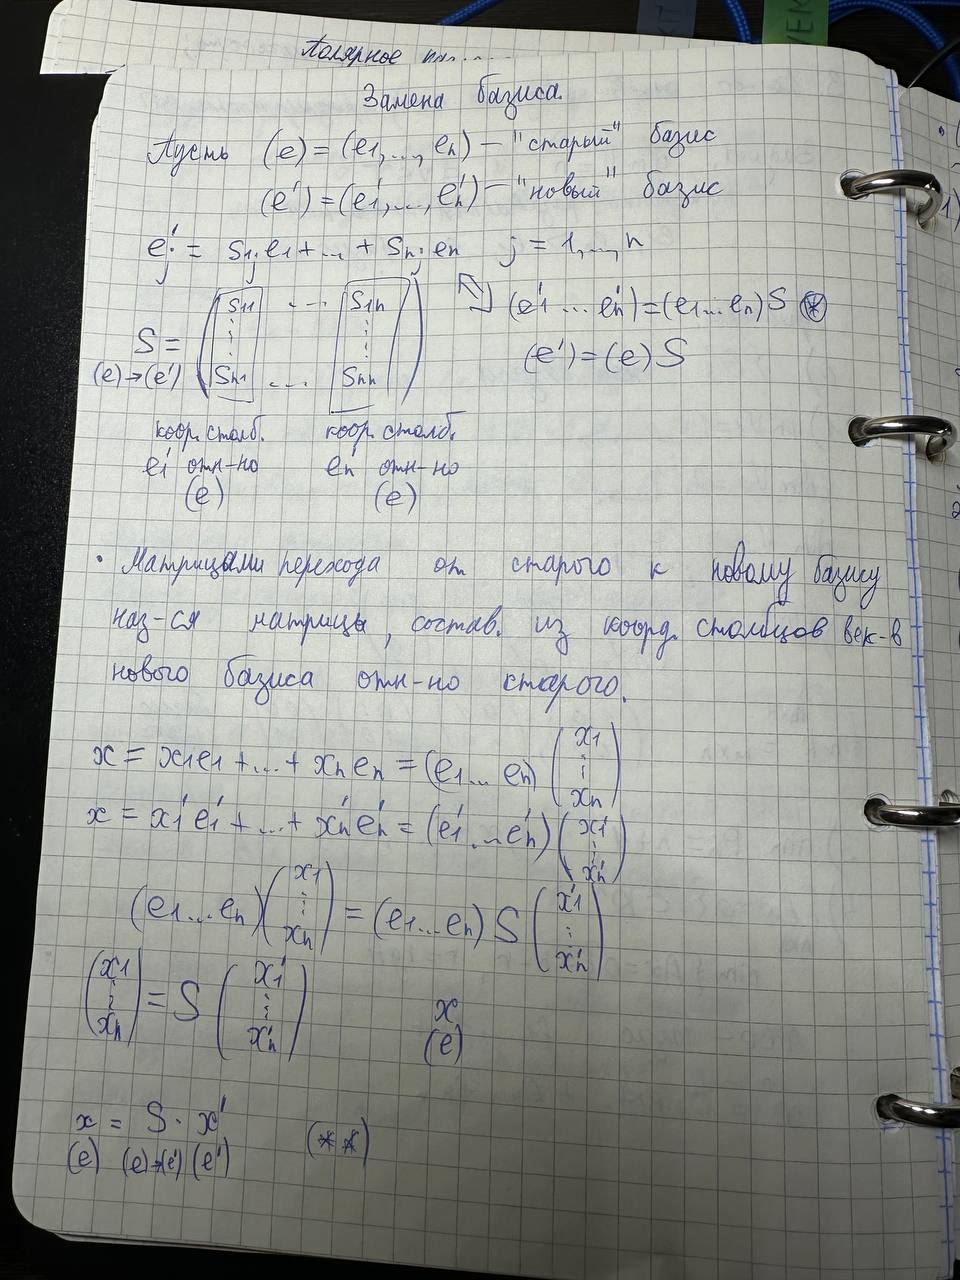 Полярное
Замена базиса.
Пусть (e) = (e1,..., en) – "старый" базис
(e') = (e1',..., en') – "новый" базис
ej' = S1j e1 + ... + Snj en j = 1,..., n
S = (S11 ... S1n ⋮ ⋮ Sn1 ... Snn) (e1' ... en') = (e1 ... en) S (*)
(e)→(e') (e') = (e) S
коор. столб. коор. столб.
e1' отн-но en' отн-но
(e) (e)
• Матрицами перехода от старого к новому базису
наз-ся матрицы, состав. из коорд. столбцов век-в
нового базиса отн-но старого.
x = x1e1 + ... + xnen = (e1 ... en) (x1 ⋮ xn)
x = x1'e1' + ... + xn'en' = (e1' ... en') (x1' ⋮ xn')
(e1 ... en) (x1 ⋮ xn) = (e1 ... en) S (x1' ⋮ xn')
(x1 ⋮ xn) = S (x1' ⋮ xn') x
(e)
x = S · x' (**)
(e) (e)→(e') (e')